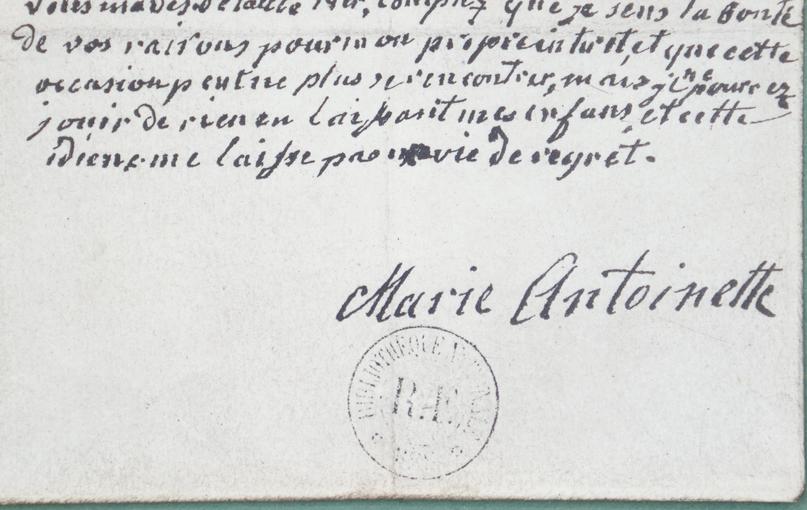 que je sens la bonté
de vos raisons pour mon propre intérêt et que cette
occasion peut ne plus se rencontrer, mais je ne pourrez
jouir de rien en laissant mes enfans, et cette
idiené me laisse pas vie de regrét.
Marie Antoinette
BIBLIOTHÈQUE NATIONALE
R.F.